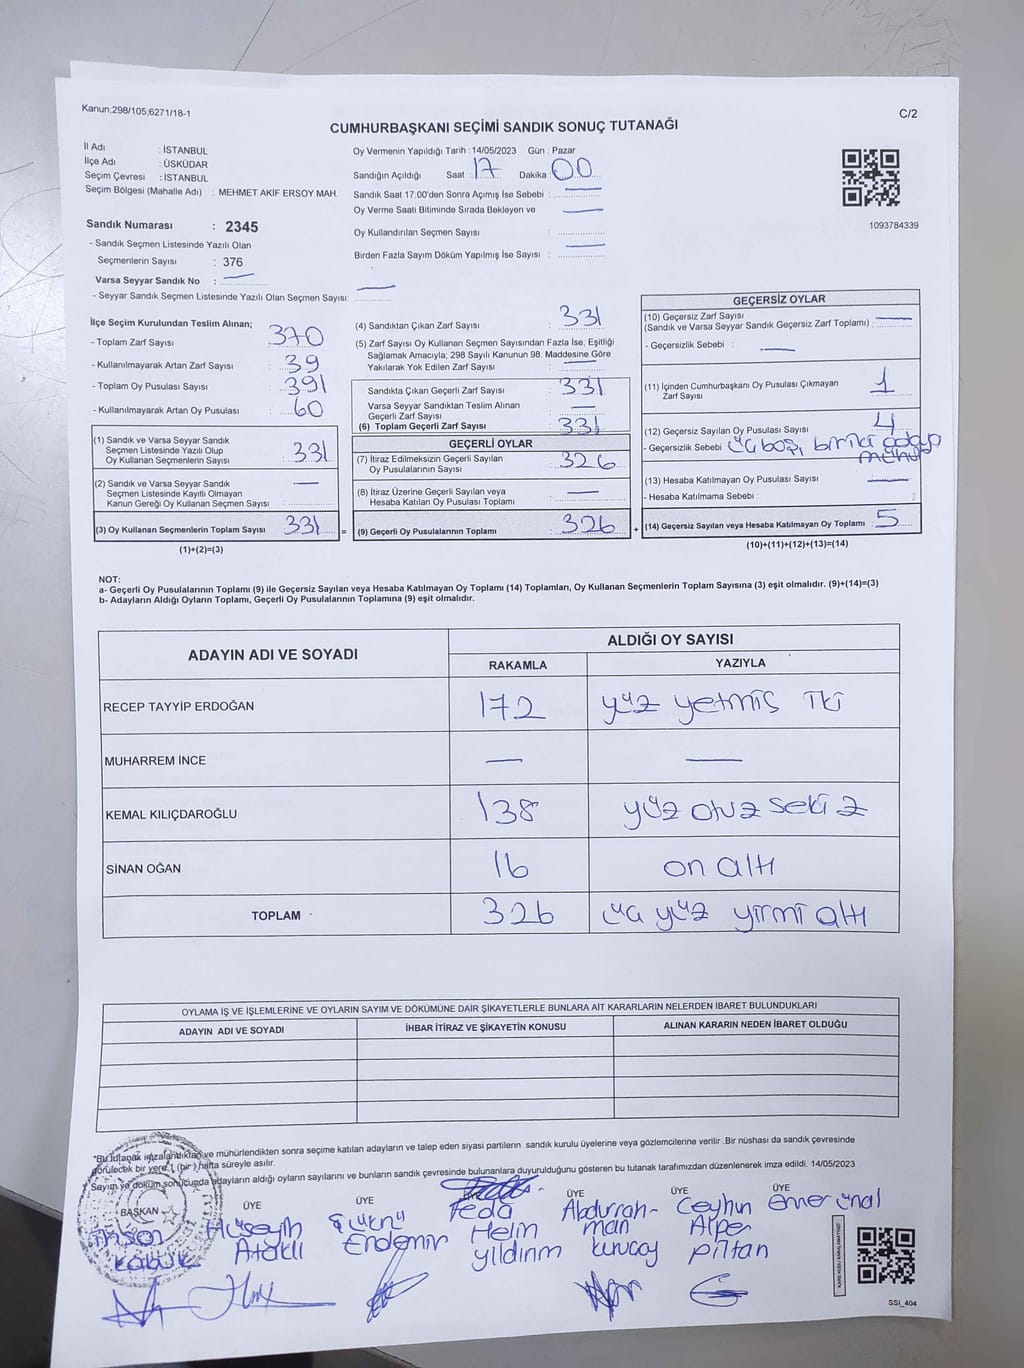 Kanun;298/105;6271/18-1
C/2
CUMHURBAŞKANI SEÇİMİ SANDIK SONUÇ TUTANAĞI
İl Adı : İSTANBUL
İlçe Adı : ÜSKÜDAR
Seçim Çevresi : İSTANBUL
Seçim Bölgesi (Mahalle Adı) : MEHMET AKİF ERSOY MAH.
Sandık Numarası : 2345
- Sandık Seçmen Listesinde Yazılı Olan
Seçmenlerin Sayısı : 376
Varsa Seyyar Sandık No : —
- Seyyar Sandık Seçmen Listesinde Yazılı Olan Seçmen Sayısı: —
Oy Vermenin Yapıldığı Tarih : 14/05/2023 Gün : Pazar
Sandığın Açıldığı Saat : 17 Dakika : 00
Sandık Saat 17:00'den Sonra Açımış İse Sebebi : —
Oy Verme Saati Bitiminde Sırada Bekleyen ve —
Oy Kullandırılan Seçmen Sayısı :
Birden Fazla Sayım Döküm Yapılmış İse Sayısı : —
1093784339
İlçe Seçim Kurulundan Teslim Alınan;
- Toplam Zarf Sayısı : 370
- Kullanılmayarak Artan Zarf Sayısı : 39
- Toplam Oy Pusulası Sayısı : 391
- Kullanılmayarak Artan Oy Pusulası : 60
(1) Sandık ve Varsa Seyyar Sandık
Seçmen Listesinde Yazılı Olup
Oy Kullanan Seçmenlerin Sayısı : 331
(2) Sandık ve Varsa Seyyar Sandık
Seçmen Listesinde Kayıtlı Olmayan
Kanun Gereği Oy Kullanan Seçmen Sayısı : —
(3) Oy Kullanan Seçmenlerin Toplam Sayısı : 331 =
(1)+(2)=(3)
(4) Sandıktan Çıkan Zarf Sayısı : 331
(5) Zarf Sayısı Oy Kullanan Seçmen Sayısından Fazla İse, Eşitliği
Sağlamak Amacıyla; 298 Sayılı Kanunun 98. Maddesine Göre
Yakılarak Yok Edilen Zarf Sayısı : —
Sandıkta Çıkan Geçerli Zarf Sayısı : 331
Varsa Seyyar Sandıktan Teslim Alınan
Geçerli Zarf Sayısı : —
(6) Toplam Geçerli Zarf Sayısı : 331
GEÇERLİ OYLAR
(7) İtiraz Edilmeksizin Geçerli Sayılan
Oy Pusulalarının Sayısı : 326
(8) İtiraz Üzerine Geçerli Sayılan veya
Hesaba Katılan Oy Pusulası Toplamı : —
(9) Geçerli Oy Pusulalarının Toplamı : 326 +
GEÇERSİZ OYLAR
(10) Geçersiz Zarf Sayısı
(Sandık ve Varsa Seyyar Sandık Geçersiz Zarf Toplamı) : —
- Geçersizlik Sebebi : —
(11) İçinden Cumhurbaşkanı Oy Pusulası Çıkmayan
Zarf Sayısı : 1
(12) Geçersiz Sayılan Oy Pusulası Sayısı : 4
- Geçersizlik Sebebi : üç boş,
(13) Hesaba Katılmayan Oy Pusulası Sayısı : —
- Hesaba Katılmama Sebebi :
(14) Geçersiz Sayılan veya Hesaba Katılmayan Oy Toplamı : 5
(10)+(11)+(12)+(13)=(14)
NOT:
a- Geçerli Oy Pusulalarının Toplamı (9) ile Geçersiz Sayılan veya Hesaba Katılmayan Oy Toplamı (14) Toplamları, Oy Kullanan Seçmenlerin Toplam Sayısına (3) eşit olmalıdır. (9)+(14)=(3)
b- Adayların Aldığı Oyların Toplamı, Geçerli Oy Pusulalarının Toplamına (9) eşit olmalıdır.
ADAYIN ADI VE SOYADI
ALDIĞI OY SAYISI
RAKAMLA YAZIYLA
RECEP TAYYİP ERDOĞAN 172 yüz yetmiş iki
MUHARREM İNCE — —
KEMAL KILIÇDAROĞLU 138 yüz otuz sekiz
SİNAN OĞAN 16 on altı
TOPLAM 326 üç yüz yirmi altı
OYLAMA İŞ VE İŞLEMLERİNE VE OYLARIN SAYIM VE DÖKÜMÜNE DAİR ŞİKAYETLERLE BUNLARA AİT KARARLARIN NELERDEN İBARET BULUNDUKLARI
ADAYIN ADI VE SOYADI İHBAR İTİRAZ VE ŞİKAYETİN KONUSU ALINAN KARARIN NEDEN İBARET OLDUĞU
*Bu tutanak imzalandıktan ve mühürlendikten sonra seçime katılan adayların ve talep eden siyasi partilerin sandık kurulu üyelerine veya gözlemcilerine verilir .Bir nüshası da sandık çevresinde
görülecek bir yere 1 (bir) hafta süreyle asılır.
* Sayım ve döküm sonucunda adayların aldığı oyların sayılarını ve bunların sandık çevresinde bulunanlara duyurulduğunu gösteren bu tutanak tarafımızdan düzenlenerek imza edildi. 14/05/2023
BAŞKAN ÜYE ÜYE ÜYE ÜYE ÜYE
Hüseyin Şükrü Feda Abdurrah- Ceyhun Ömer Ünal
Ataklı Erdemir Helin man Alper
Kabuk Yıldırım Kurucay Piltan
SSİ_404